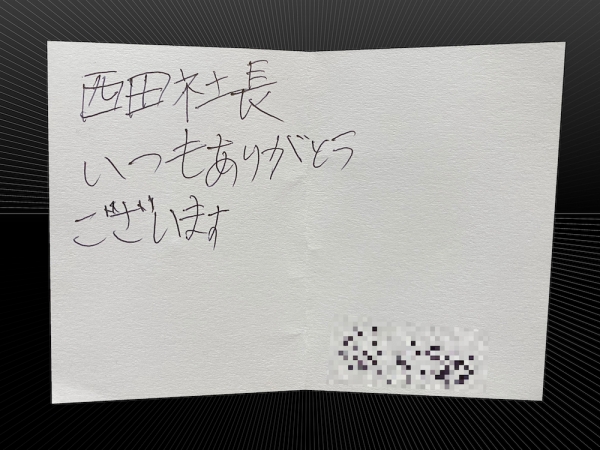 西田社長
いつもありがとう
ございます